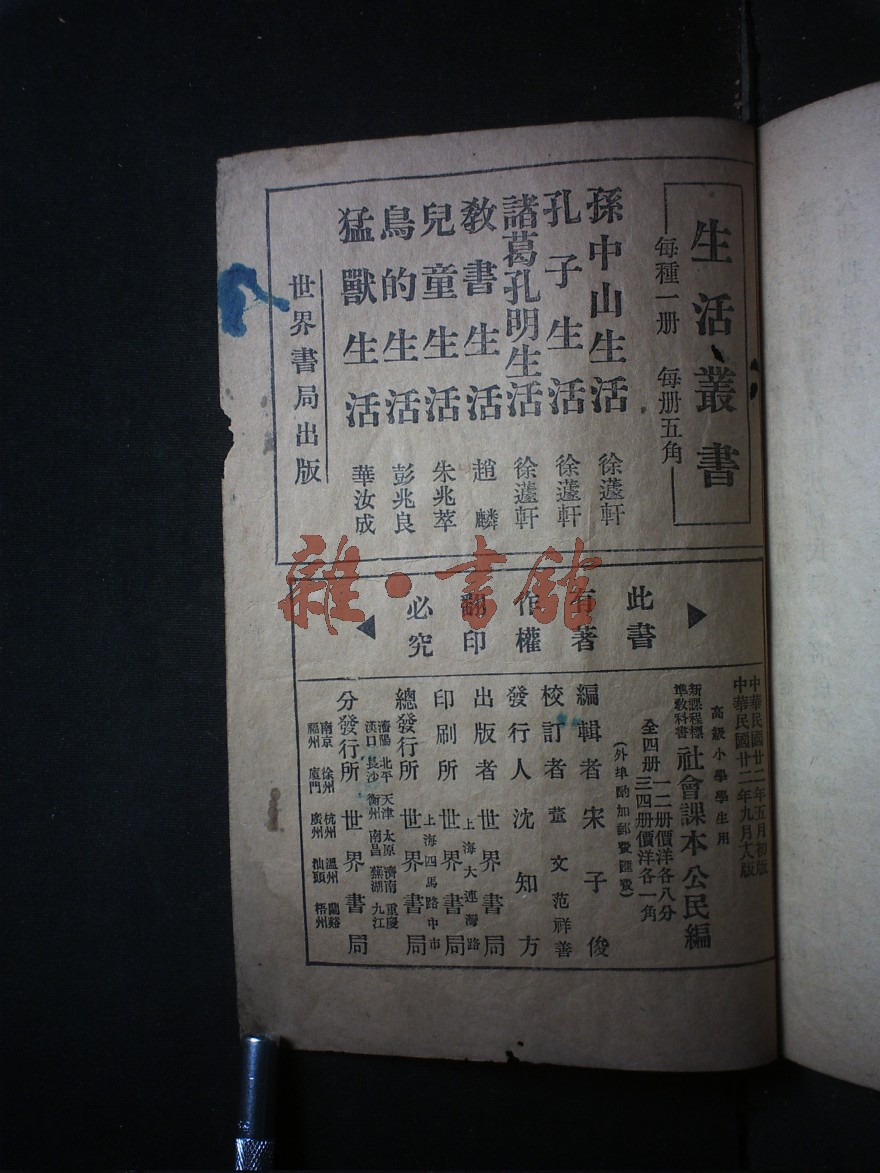 生活叢書
每種一册 每册五角
孫中山生活 徐蘧軒
孔子生活 徐蘧軒
諸葛孔明生活 徐蘧軒
教書生活 趙麟
兒童生活 朱兆萃
鳥的生活 彭兆良
猛獸生活 華汝成
世界書局出版
此書
有著
作權
翻印
必究
中華民國廿二年五月初版
中華民國廿二年九月大版
高級小學學生用
新課程標準教科書 社會課本 公民編
全四册 一二册價洋各八分
三四册價洋各一角
(外埠酌加郵費匯費)
編輯者 宋子俊
校訂者 董文 范祥善
發行人 沈知方
出版者 上海大連灣路 世界書局
印刷所 世界書局
總發行所 上海四馬路中市 世界書局
瀋陽 北平 天津 太原 濟南 重慶
漢口 長沙 衡州 南昌 蕪湖 九江
分發行所 世界書局
南京 徐州 杭州 溫州 蘭谿
福州 廈門 廣州 汕頭 梧州
雜·書館